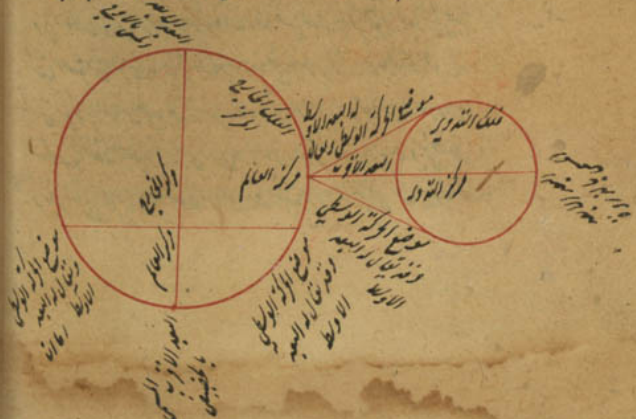 البعد الابعد
المسمى بالاوج
الفلك الخارج
المركز
مركز الخارج
مركز العالم
مركز العالم
موضع الحركة الوسطى
له البعد الاوسط
البعد الاقرب
فلك التدوير
مركز التدوير
موضع الحركة الوسطى
وقد يقال له البعد
الاوسط
موضع الحركة الوسطى
وقد يقال له البعد
الاوسط
موضع الحركة الوسطى
ويقال له البعد
الاوسط
البعد الاقرب المسمى
بالحضيض